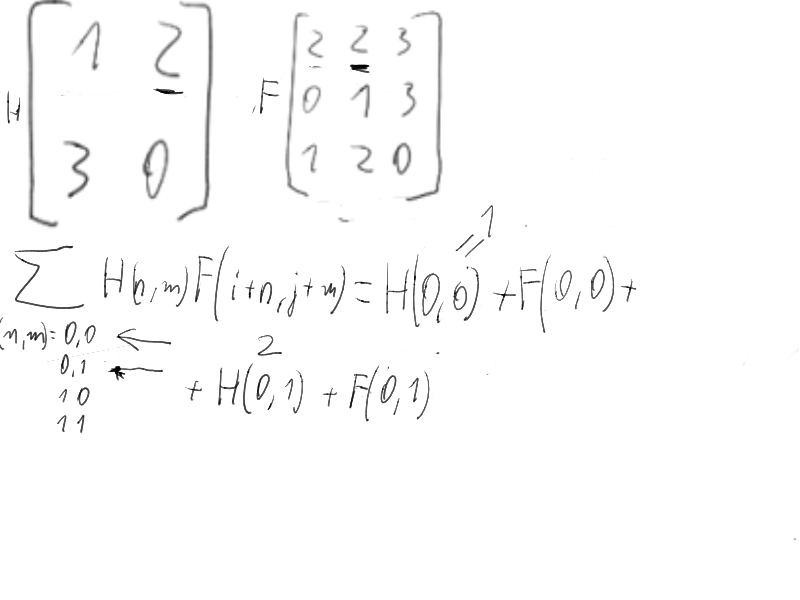 H [ 1 2 F [ 2 2 3
0 1 3
3 0 ] 1 2 0 ]
1
∑ H(n,m)F(i+n,j+m) = H(0,0) + F(0,0) +
(n,m)=0,0 ← 2
0,1 ← + H(0,1) + F(0,1)
1 0
1 1